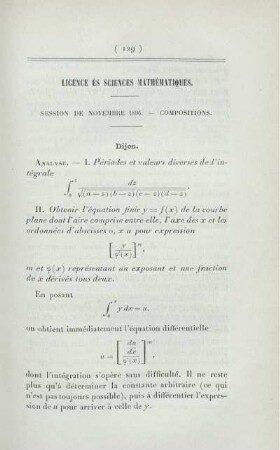 ( 129 )
LICENCE ÈS SCIENCES MATHÉMATIQUES.
SESSION DE NOVEMBRE 1896. — COMPOSITIONS.
Dijon.
ANALYSE. — I. Périodes et valeurs diverses de l'in-
tégrale
∫₀ᶻ dz / √((a − z)(b − z)(c − z)(d − z)).
II. Obtenir l'équation finie y = f(x) de la courbe
plane dont l'aire comprise entre elle, l'axe des x et les
ordonnées d'abscisses 0, x a pour expression
[y / φ(x)]ᵐ,
m et φ(x) représentant un exposant et une fraction
de x dérivés tous deux.
En posant
∫₀ˣ y dx = u,
on obtient immédiatement l'équation différentielle
u = [(du/dx) / φ(x)]ᵐ,
dont l'intégration s'opère sans difficulté. Il ne reste
plus qu'à déterminer la constante arbitraire (ce qui
n'est pas toujours possible), puis à différentier l'expres-
sion de u pour arriver à celle de y.